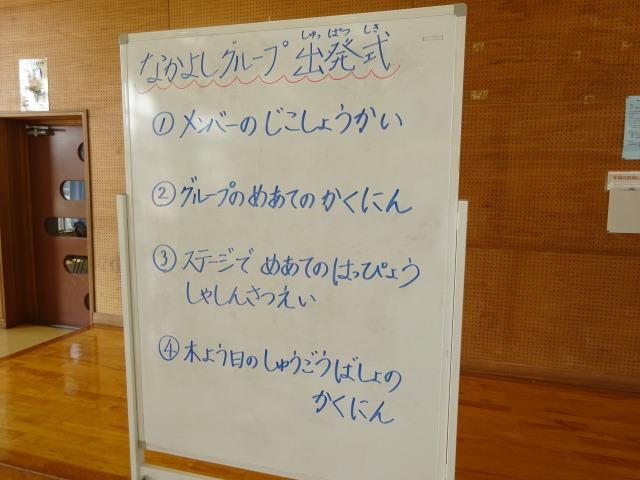 なかよしグループ 出発式
しゅっ ぱつ しき
① メンバーの じこしょうかい
② グループの めあての かくにん
③ ステージで めあての はっぴょう
しゃしんさつえい
④ 木よう日の しゅうごうばしょの
かくにん